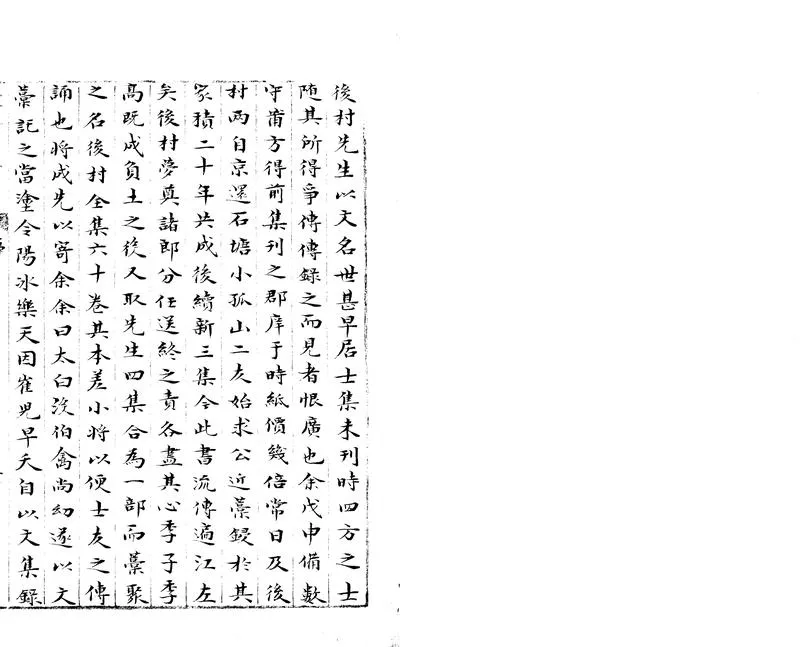 後村先生以文名世甚早居士集未刊時四方之士
随其所得爭傳傳錄之而見者恨廣也余戊申備數
守莆方得前集刊之郡庠于時紙價幾倍常日及後
村两自京還石塘小孤山二友始求公近藁録於其
家積二十年共成後續新三集今此書流傳遍江左
矣後村夢奠諸郎分任送終之責各盡其心季子季
高既成負土之後又取先生四集合為一部而藁聚
之名後村全集六十卷其本差小將以便士友之傳
誦也將成先以寄余余曰太白沒伯禽尚幼遂以文
藁託之當塗令陽冰樂天因崔兒早夭自以文集録